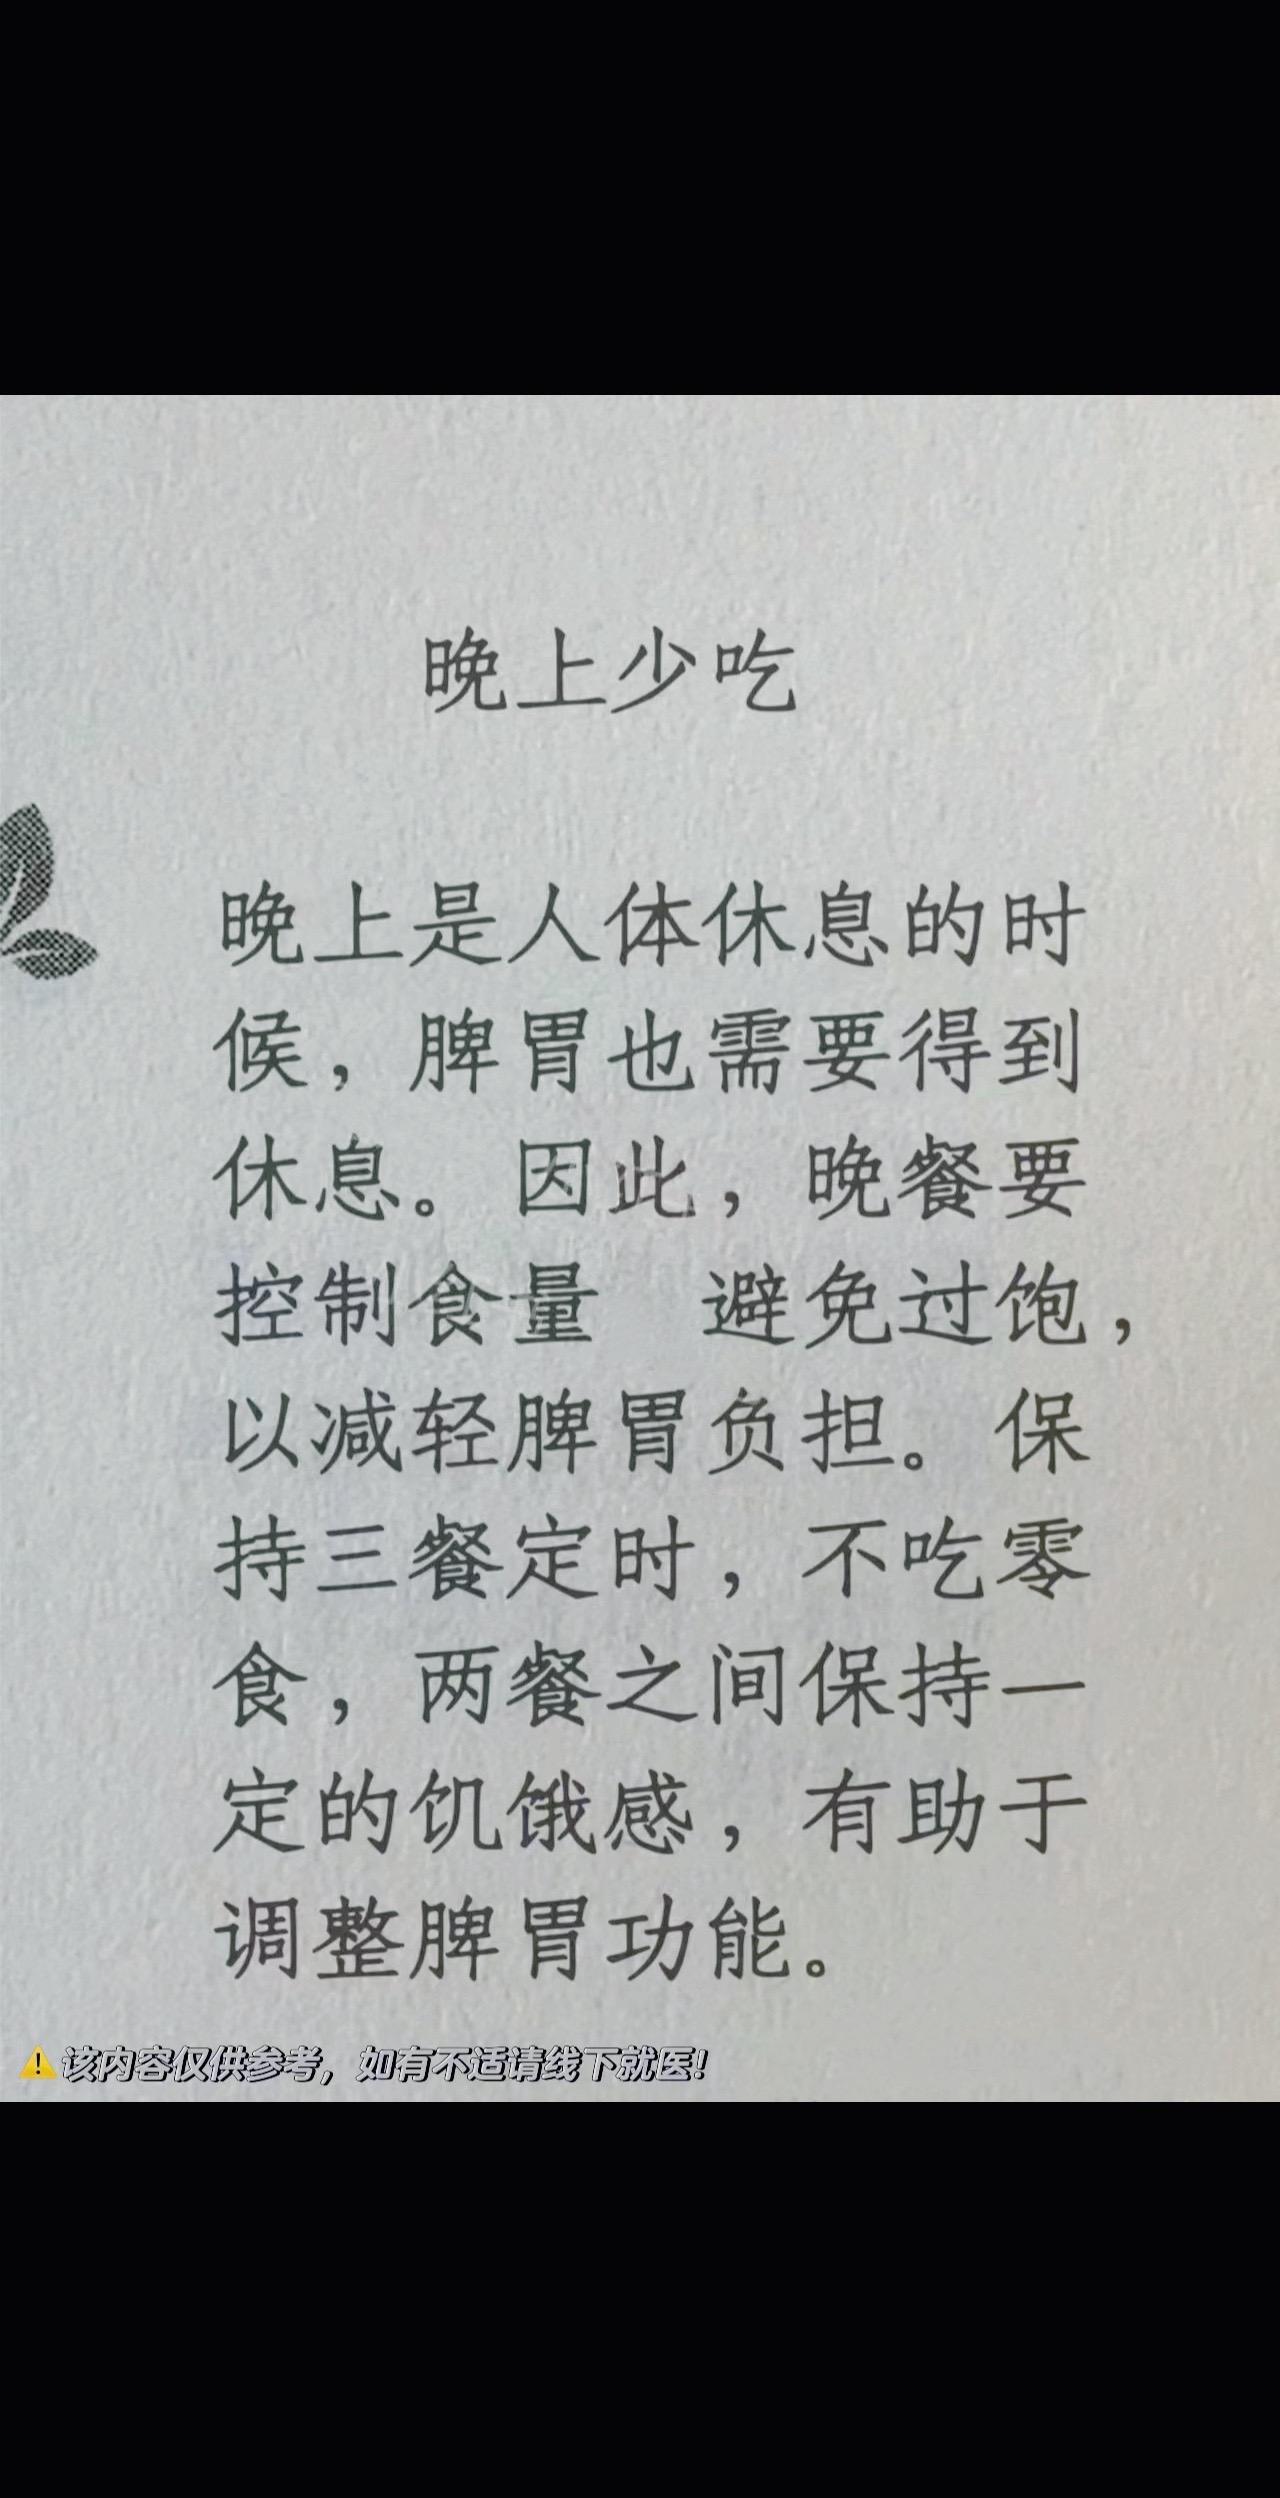 晚上少吃
晚上是人体休息的时
候，脾胃也需要得到
休息。因此，晚餐要
控制食量 避免过饱，
以减轻脾胃负担。保
持三餐定时，不吃零
食，两餐之间保持一
定的饥饿感，有助于
调整脾胃功能。
⚠️该内容仅供参考，如有不适请线下就医！